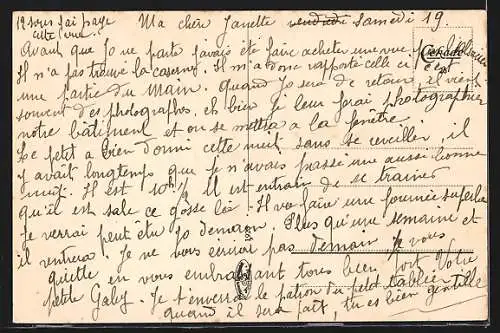 12 sous j'ai payé
cette vue.
Ma chère Janette vendredi samedi 19
Avant que Jo ne parte j'avais été faire acheter une vue par le
Il m'a pas trouvé la caserne. Il m'a donc rapporté celle ci c'est
une partie du Main. Quand Jo sera de retour, il vient
souvent des photographes, eh bien je leur ferai photographier
notre bâtiment et on se mettra a la fenêtre.
Le petit a bien dormi cette nuit sans se reveiller il
y avait longtemps que je n'avais passé une aussi bonne
nuit. Il est 10h½ Il est entrain de se trainer
qu'il est sale ce gosse là. Il va faire une journée superbe
Je verrai peut etre Jo demain. Plus qu'une semaine et
il rentrera. Je ne vous ecrirai pas demain Je vous
quitte en vous embrassant tous bien fort Votre
petite Gaby. Je t'enverrai le patron du petit tablier
quand il sera fait, tu es bien gentille